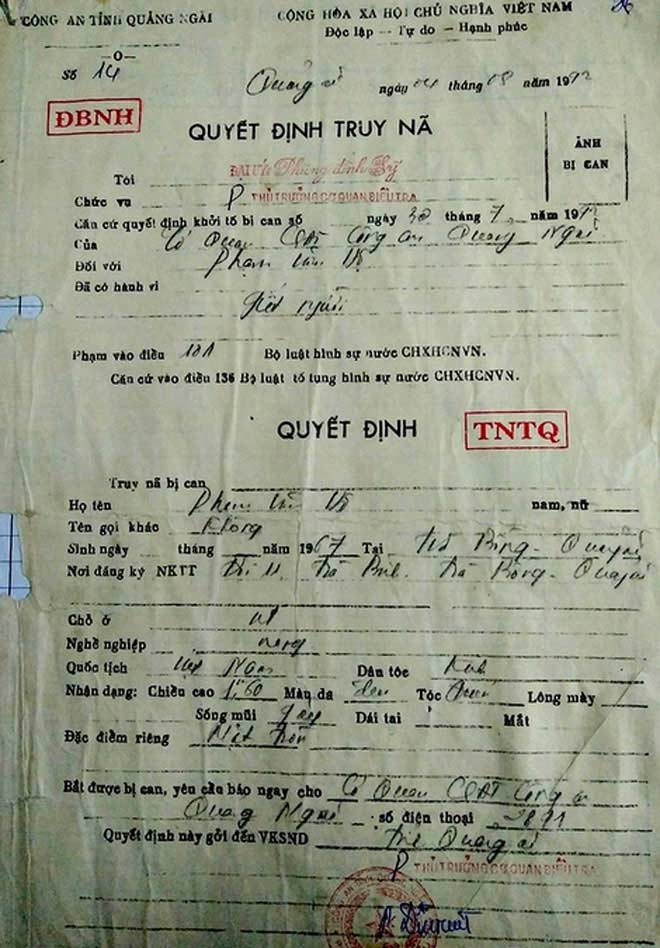 CÔNG AN TỈNH QUẢNG NGÃI
CỘNG HÒA XÃ HỘI CHỦ NGHĨA VIỆT NAM
Độc lập — Tự do — Hạnh phúc
—O—
Số 14
ngày 04 tháng 08 năm 19
ĐBNH
QUYẾT ĐỊNH TRUY NÃ
ẢNH
BỊ CAN
Tôi ĐẠI ÚY Phùng đình Sỹ
Chức vụ P THỦ TRƯỞNG CƠ QUAN ĐIỀU TRA
Căn cứ quyết định khởi tố bị can số ngày 30 tháng 7 năm 19
Của Cơ Quan CSĐT Công an Quảng Ngãi
Đối với Phạm Văn
Đã có hành vi
Giết người
Phạm vào điều 101 Bộ luật hình sự nước CHXHCNVN.
Căn cứ vào điều 136 Bộ luật tố tụng hình sự nước CHXHCNVN.
QUYẾT ĐỊNH
TNTQ
Truy nã bị can
Họ tên Phạm Văn nam, nữ
Tên gọi khác Không
Sinh ngày tháng năm 1967 Tại Trà Bồng - Quảng Ngãi
Nơi đăng ký NKTT Trà Bồng - Quảng Ngãi
Chỗ ở
Nghề nghiệp nông
Quốc tịch Việt Nam Dân tộc Kinh
Nhận dạng: Chiều cao 1m60 Màu da đen Tóc Lông mày
Sống mũi Dái tai Mắt
Đặc điểm riêng Mặt tròn
Bắt được bị can, yêu cầu báo ngay cho Cơ Quan CSĐT Công an
Quảng Ngãi số điện thoại
Quyết định này gởi đến VKSND
P THỦ TRƯỞNG CƠ QUAN ĐIỀU TRA